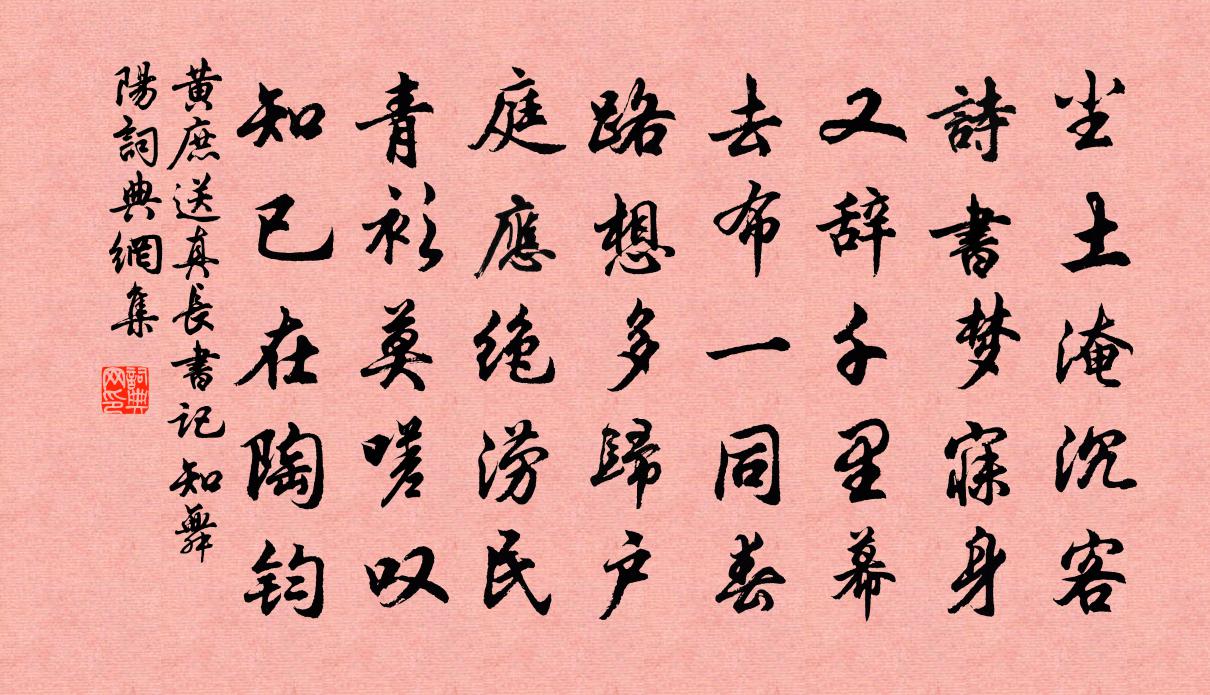 尘土淹沉客
詩書梦寐身
又辞千里幕
去布一同春
路想多歸户
庭應绝涝民
青衫莫嗟叹
知已在陶钧
黄庶送真長書记知舞
陽詞典網集
詞典网印